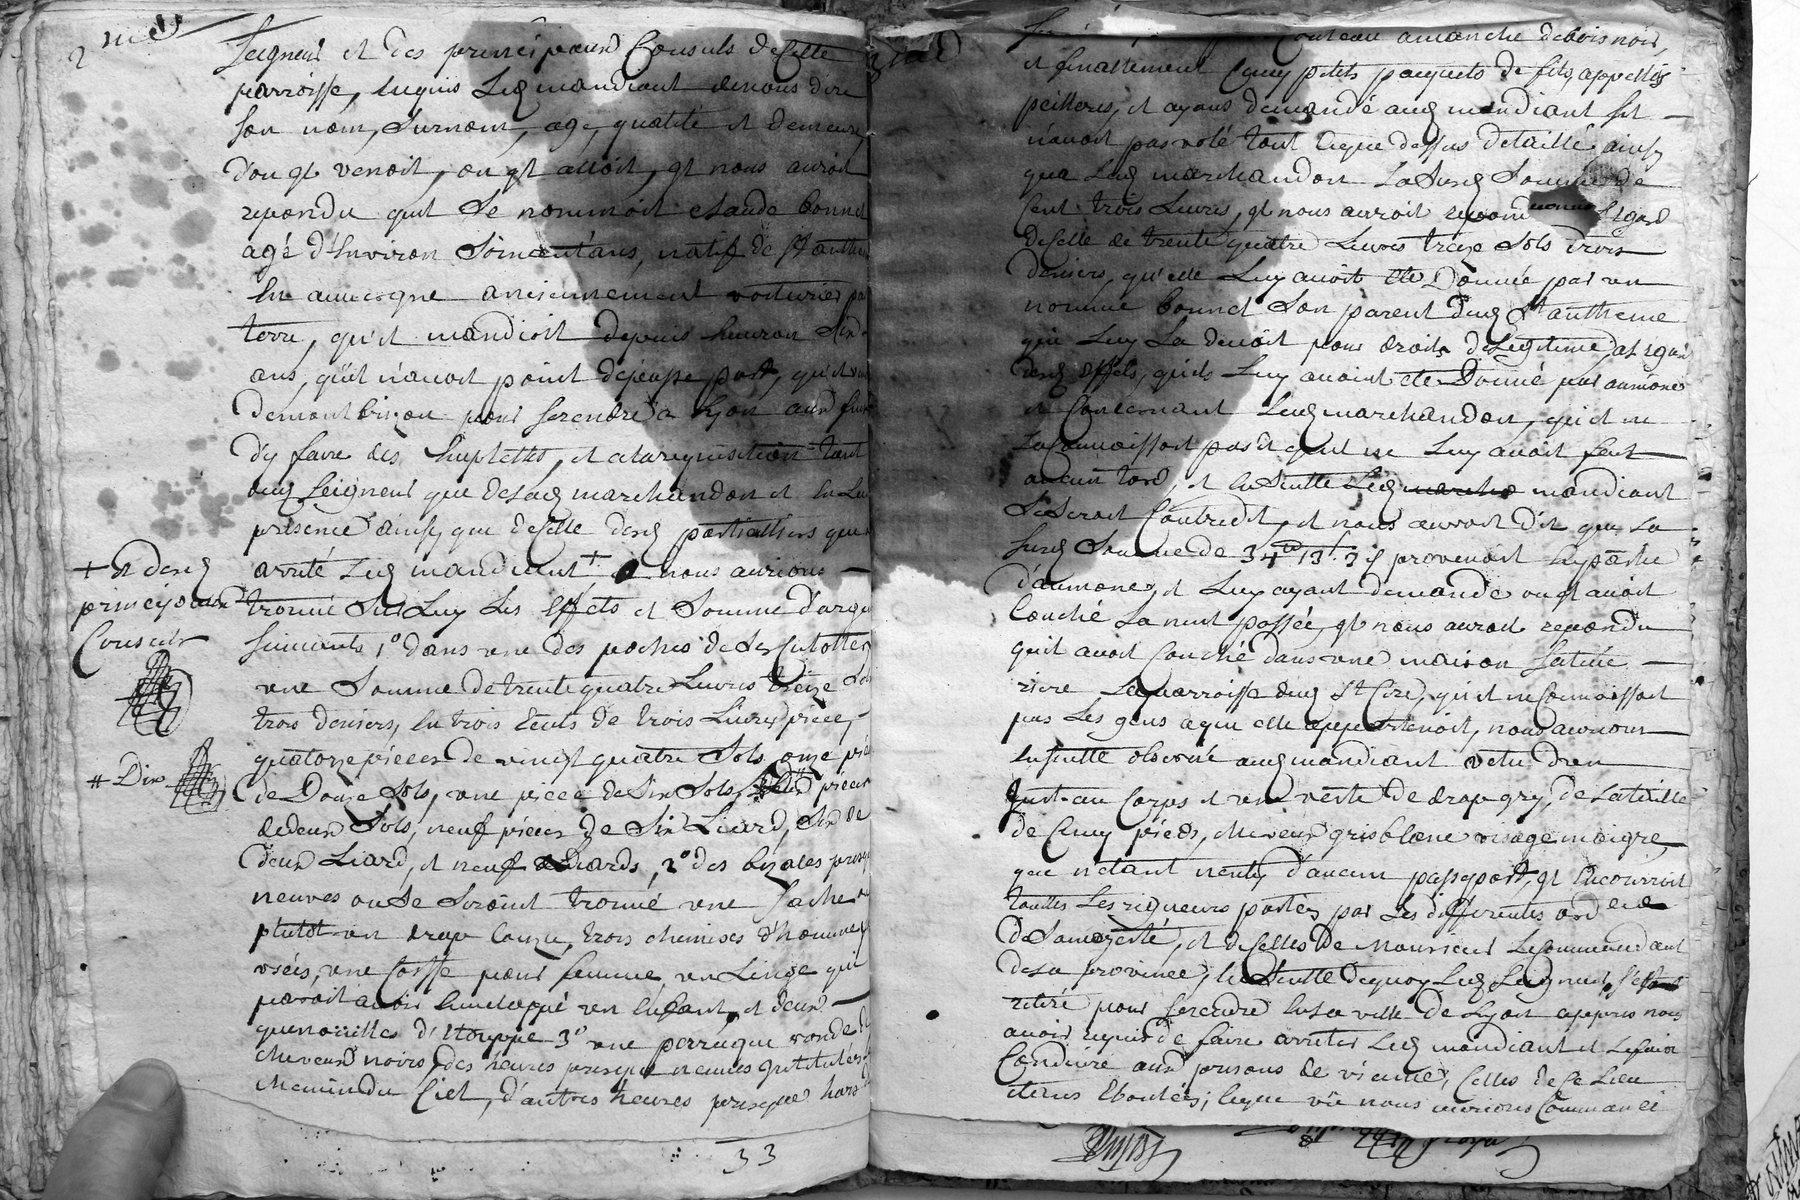 2me
Seigneur et des principaux Consuls de Cette
parroisse, requis Led mandiant denous dire
son nom, surnom, age, qualité et demeure,
d'ou qt venoit, ou qt alloit, qt nous auroit
repondu quil Se nommoit Claude bonnet
agé d'Environ Soixent'ans, natif de St anthem
En auvergne anciennement voiturier par
terre, qu'il mandioit depuis Environ Six
ans, quil n'avoit point depasse port, qu'il
demontbrizon pour serendre a Lyon aux fins
d'y faire des Empletes, et alarequisition tant
dud Seigneur que desdq marchandon et En Leur
presence ainsy que deselle desd particulliers que
arreté Led mandiant + nous aurions
+ et desd
principaux
Consuls
trouvé Sur Luy Les Effets et Somme d'argent
suivants 1° dans une des poches de Ses Culottes
une Somme detrente quatre Livres treize Sols
trois deniers, En trois Ecus de trois Livres piece,
quatorze pieces de vingt quatre Sols, onze pieces
# Dix
de Douze Sols, une piece de Six Sols, pieces
dedeux Sols, neuf pieces de Six Liard, Six de
deux Liard, et neuf Liards, 2° des bezaces presque
neuves ou Se Seroint trouvé une Sache ou
plutot un drap Cousu, trois chemises d'homme
usées, une Coiffe pour femme, un Linge qui
paroit avoir Enveloppé un Enfant, et deux
quenouilles d'Etouppe 3° une perruque ronde de
cheveux noirs, des heures presque neuves Intitulées
chemin du Ciel, d'autres heures presque hors
33
Couteau amanche debois noir,
et finallement Cinq petits paquets de fils, appellés
peilleres, et ayans demandé aud mandiant Sil
n'avoit pas volé tout Ceque dessus detaillé, ainsy
qua Led marchandon La Susd Somme de
Cent trois Livres, qt nous auroit repondu Legard
deselle de trente quatre Livres treize Sols trois
deniers, qu'elle Luy avoit été Donnée par un
nommé bonnet Son parent dud St antheme
qui Luy La devoit pour droits de Legitime, a Legard
desd Effets, quils Luy avoint été Donné par aumone
et Concernant Led marchandon, quil ne
Laconnoissoit pas et quil ne Luy avoit fait
aucun tord, et Ensuitte Led mandiant
Seseroit Contredit, et nous auroit dit que La
susd Somme de 34tt 13s 3d provenoit Enpartie
d'aumones, et Luy ayant demandé ou qt avoit
Couché La nuit passée, qt nous auroit repondu
quil avoit Couché dans une maison Scituée
riere Laparroisse dud St Cire, quil ne Connoissoit
pas Les gens aqui elle appartenoit, nous aurions
Ensuitte observé aud mandiant vetu d'un
Just au Corps et une veste de drap gry, de Lataille
de Cinq pieds, cheveux gris blanc visage maigre,
que n'étant nenty d'aucun passeport, qt Encourroit
touttes Les rigueurs portées par Les differentes ordces
de Samajesté, et deCelles de Monsieur LeCommandant
dela province, En Suitte dequoy Led Seigneur, s'est
retiré pour Serendre Ensa ville de Lyon appres nous
avoir requis de faire arreter Led mandiant et Lefaire
Conduire aux prisons de vienne, Celles de Ce Lieu
etans Eboulées; Ceque vû nous aurions Commandé